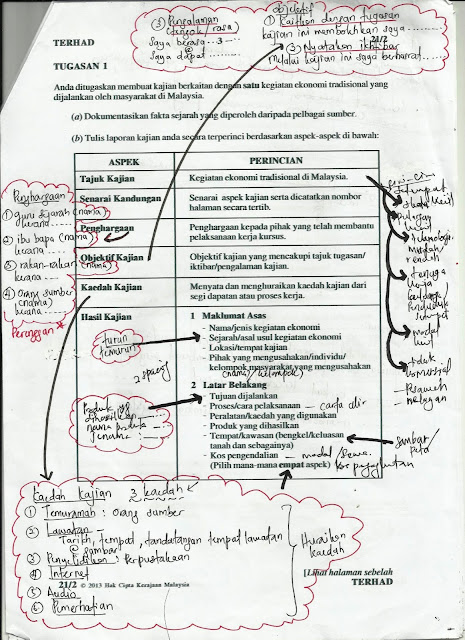 ③ Pengalaman
(dengok / rasa)
Saya berasa ...3.....
Saya dapat ........
Objektif
① Kaitkan dengan tugasan
kajian ini membolehkan saya ....
21/2
③ Nyatakan iktibar
Melalui kajian ini saya berharap......
TERHAD
TUGASAN 1
Anda ditugaskan membuat kajian berkaitan dengan satu kegiatan ekonomi tradisional yang
dijalankan oleh masyarakat di Malaysia.
(a) Dokumentasikan fakta sejarah yang diperoleh daripada pelbagai sumber.
(b) Tulis laporan kajian anda secara terperinci berdasarkan aspek-aspek di bawah:
ASPEK PERINCIAN
Tajuk Kajian Kegiatan ekonomi tradisional di Malaysia.
Senarai Kandungan Senarai aspek kajian serta dicatatkan nombor
halaman secara tertib.
Penghargaan Penghargaan kepada pihak yang telah membantu
pelaksanaan kerja kursus.
Objektif Kajian Objektif kajian yang mencakupi tajuk tugasan/
iktibar/pengalaman kajian.
Kaedah Kajian Menyata dan menghuraikan kaedah kajian dari
segi dapatan atau proses kerja.
Hasil Kajian 1 Maklumat Asas
- Nama/jenis kegiatan ekonomi
- Sejarah/asal usul kegiatan ekonomi
- Lokasi/tempat kajian
- Pihak yang mengusahakan/individu/
kelompok masyarakat yang mengusahakan
(nama) / kelompok)
2 Latar Belakang
- Tujuan dijalankan
- Proses/cara pelaksanaan – carta alir
- Peralatan/kaedah yang digunakan
- Produk yang dihasilkan
- Tempat/kawasan (bengkel/keluasan
tanah dan sebagainya)
- Kos pengendalian – modal / sewa.
(Pilih mana-mana empat aspek) kos pengangkutan
Penghargaan
① guru sejarah (nama)
kerana ....
② ibu bapa (nama)
kerana ....
③ rakan-rakan (nama)
kerana ....
④ Orang sumber
(nama)
kerana ....
Perenggan *
turun
temurun
Produk yg
dihasilkan
nama produk
Jenama :
Ciri-ciri
setempat
skala kecil
pulangan
kecil
teknologi
mudah
rendah
tenaga
kerja
keluarga /
penduduk
setempat
modal
kecil
tidak
komersial
- Pesawah
- nelayan
gambar /
peta
Kaedah Kajian 3 kaedah
① Temuramah : orang sumber
② Lawatan –
Tarikh, tempat, tandatangan tempat lawatan
@ gambar
③ Penyelidikan : Perpustakaan
④ Internet
⑤ Audio
⑥ Pemerhatian
Huraikan
kaedah
21/2 © 2013 Hak Cipta Kerajaan Malaysia
[Lihat halaman sebelah
TERHAD